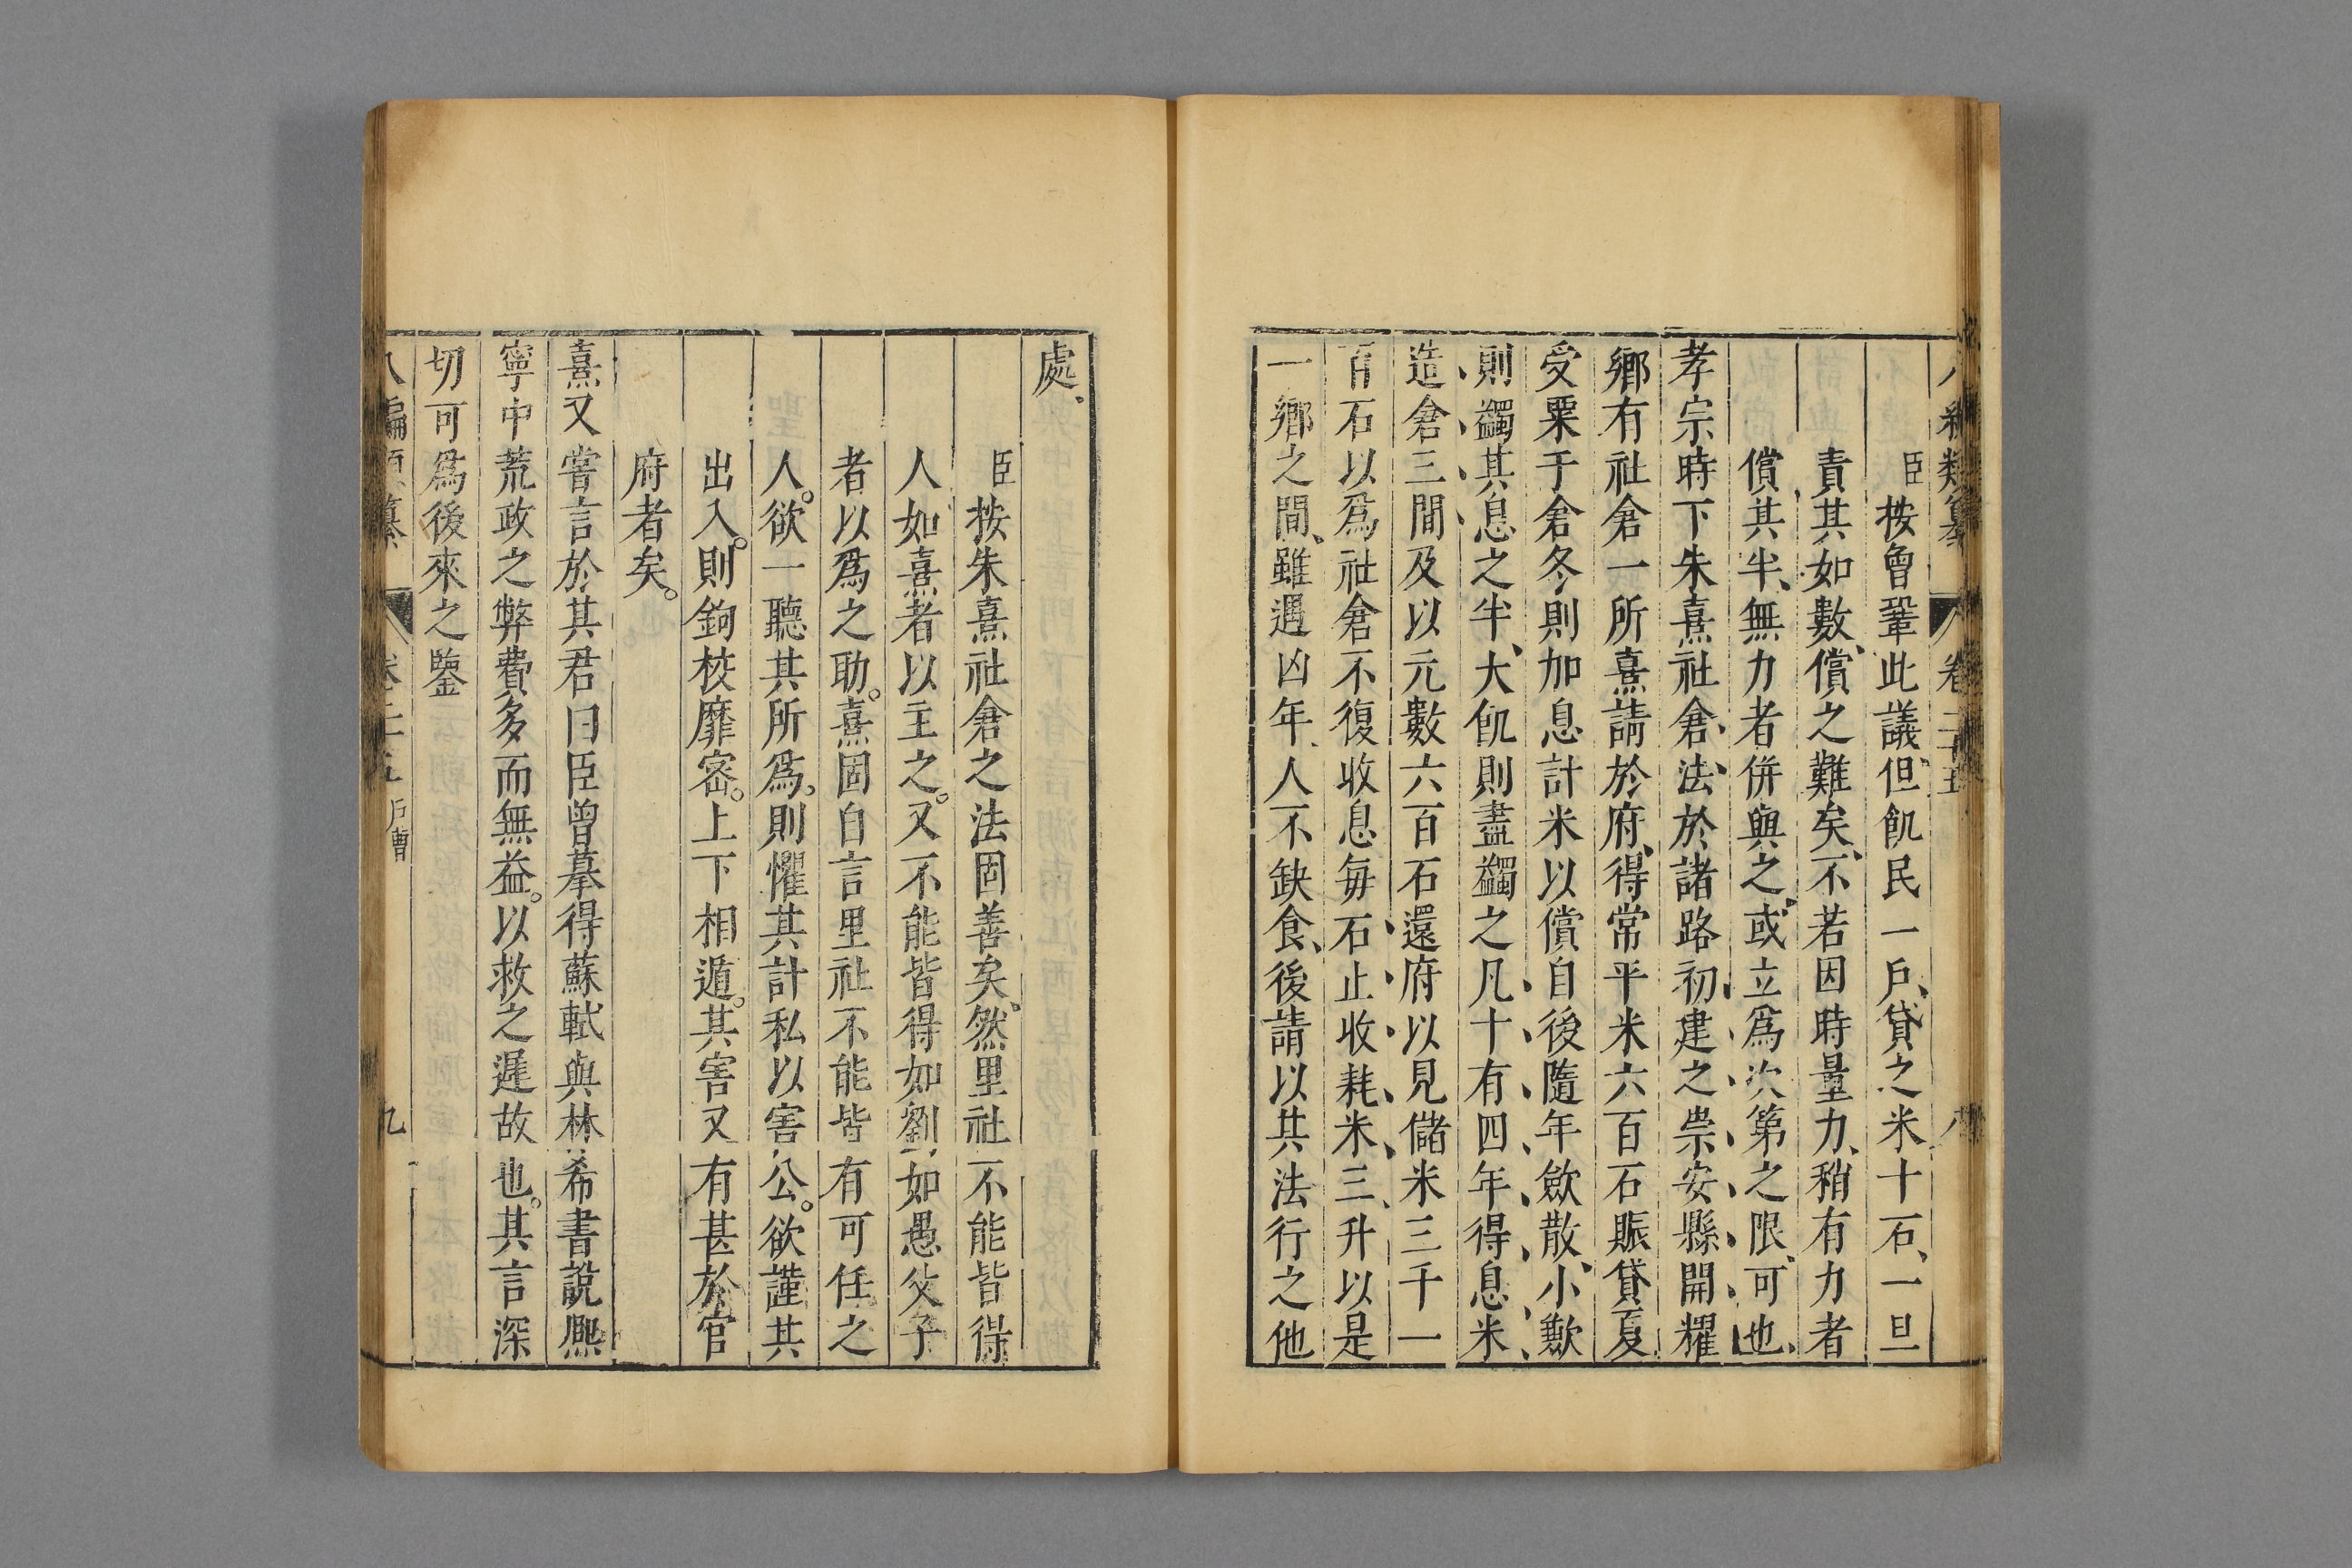 類纂 卷二十五 八
臣按曾鞏此議、但飢民一戶、貸之米十石、一旦
責其如數、償之難矣、不若因時量力、稍有力者
償其半、無力者併與之、或立爲次第之限、可也、
孝宗時下朱熹社倉、法、於諸路初建之崇安縣開耀
鄉有社倉一所熹請於府、得常平米六百石賑貸夏
受粟于倉冬則加息計米以償自後隨年歛散、小歉
則蠲其息之半、大飢則盡蠲之凡十有四年得息米
造倉三間及以元數六百石還府以見儲米三千一
百石以爲社倉不復收息每石止收耗米三升以是
一鄉之間、雖遇凶年、人不缺食、後請以其法行之他
處、
臣按朱熹社倉之法固善矣、然里社不能皆得
人如熹者以主之。又不能皆得如劉如愚父子
者以爲之助。熹固自言里社不能皆有可任之
人。欲一聽其所爲。則懼其計私以害公。欲謹其
出入。則鉤校靡密。上下相遁。其害又有甚於官
府者矣。
熹又嘗言於其君曰臣曾摹得蘇軾與林希書說熙
寧中荒政之弊費多而無益。以救之遲故也。其言深
切可爲後來之鑒
八編類纂 卷二十五 戶曹 九